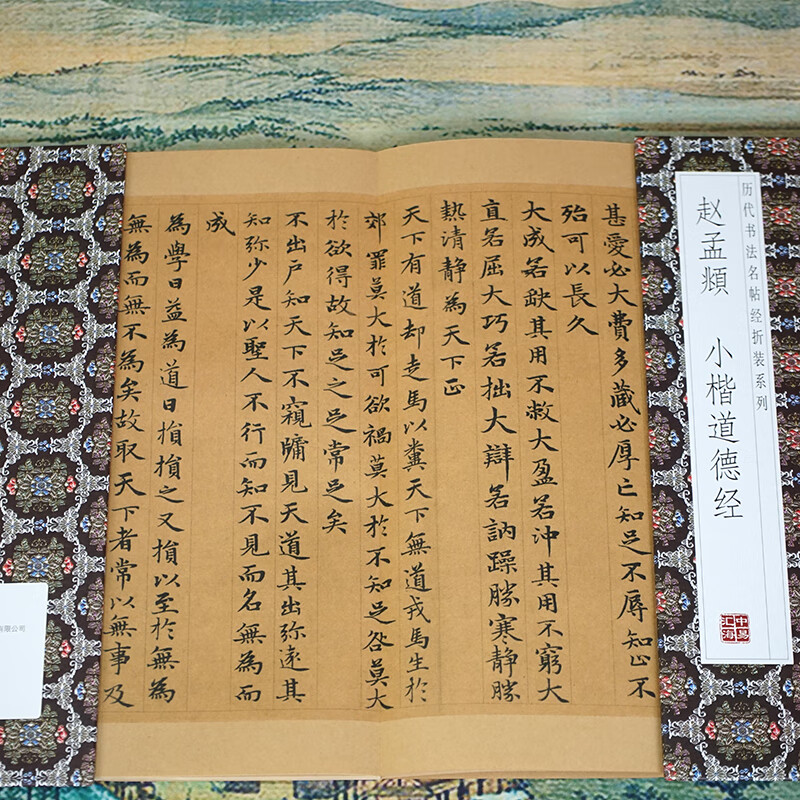 历代书法名帖经折装系列
赵孟頫 小楷道德经
中易汇海
甚愛必大費多藏必厚亡知足不辱知止不
殆可以長久
大成若缺其用不敝大盈若沖其用不窮大
直若屈大巧若拙大辯若訥躁勝寒静勝
熱清静為天下正
天下有道却走馬以糞天下無道戎馬生於
郊罪莫大於可欲禍莫大於不知足咎莫大
於欲得故知足之足常足矣
不出戶知天下不窺牖見天道其出弥遠其
知弥少是以聖人不行而知不見而名無為而
成
為學日益為道日損損之又損以至於無為
無為而無不為矣故取天下者常以無事及
有限公司